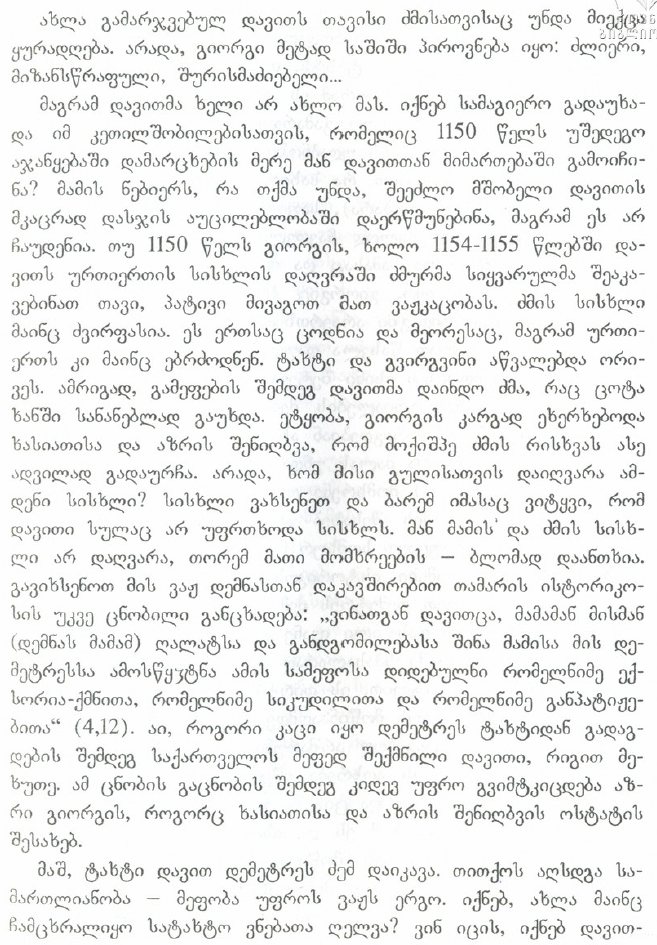 ახლა გამარჯვებულ დავითს თავისი ძმისათვისაც უნდა მიექცა
ყურადღება. არადა, გიორგი მეტად საშიში პიროვნება იყო: ძლიერი,
მიზანსწრაფული, შურისმაძიებელი...
მაგრამ დავითმა ხელი არ ახლო მას. იქნებ სამაგიერო გადაუხა-
და იმ კეთილშობილებისათვის, რომელიც 1150 წელს უშედეგო
აჯანყებაში დამარცხების მერე მან დავითთან მიმართებაში გამოიჩი-
ნა? მამის ნებიერს, რა თქმა უნდა, შეეძლო მშობელი დავითის
მკაცრად დასჯის აუცილებლობაში დაერწმუნებინა, მაგრამ ეს არ
ჩაუდენია. თუ 1150 წელს გიორგის, ხოლო 1154-1155 წლებში და-
ვითს ურთიერთის სისხლის დაღვრაში ძმურმა სიყვარულმა შეაკა-
ვებინათ თავი, პატივი მივაგოთ მათ ვაჟკაცობას. ძმის სისხლი
მაინც ძვირფასია. ეს ერთსაც ცოდნია და მეორესაც, მაგრამ ურთი-
ერთს კი მაინც ებრძოდნენ. ტახტი და გვირგვინი აწვალებდა ორი-
ვეს. ამრიგად, გამეფების შემდეგ დავითმა დაინდო ძმა, რაც ცოტა
ხანში სანანებლად გაუხდა. ეტყობა, გიორგის კარგად ეხერხებოდა
ხასიათისა და აზრის შენიღბვა, რომ მოქიშპე ძმის რისხვას ასე
ადვილად გადაურჩა. არადა, ხომ მისი გულისათვის დაიღვარა ამ-
დენი სისხლი? სისხლი ვახსენეთ და ბარემ იმასაც ვიტყვი, რომ
დავითი სულაც არ უფრთხოდა სისხლს. მან მამის და ძმის სისხ-
ლი არ დაღვარა, თორემ მათი მომხრეების – ბლომად დაანთხია.
გავიხსენოთ მის ვაჟ დემნასთან დაკავშირებით თამარის ისტორიკო-
სის უკვე ცნობილი განცხადება: „ვინათგან დავითცა, მამამან მისმან
(დემნას მამამ) ღალატსა და განდგომილებასა შინა მამისა მის დე-
მეტრესსა ამოსწყჳტნა ამის სამეფოსა დიდებულნი რომელნიმე ექ-
სორია-ქმნითა, რომელნიმე სიკუდილითა და რომელნიმე განპატიჟე-
ბითა“ (4,12). აი, როგორი კაცი იყო დემეტრეს ტახტიდან გადაგ-
დების შემდეგ საქართველოს მეფედ შექმნილი დავითი, რიგით მე-
ხუთე. ამ ცნობის გაცნობის შემდეგ კიდევ უფრო გვიმტკიცდება აზ-
რი გიორგის, როგორც ხასიათისა და აზრის შენიღბვის ოსტატის
შესახებ.
მაშ, ტახტი დავით დემეტრეს ძემ დაიკავა. თითქოს აღსდგა სა-
მართლიანობა – მეფობა უფროს ვაჟს ერგო. იქნებ, ახლა მაინც
ჩამცხრალიყო სატახტო ვნებათა ღელვა? ვინ იცის, იქნებ დავით-